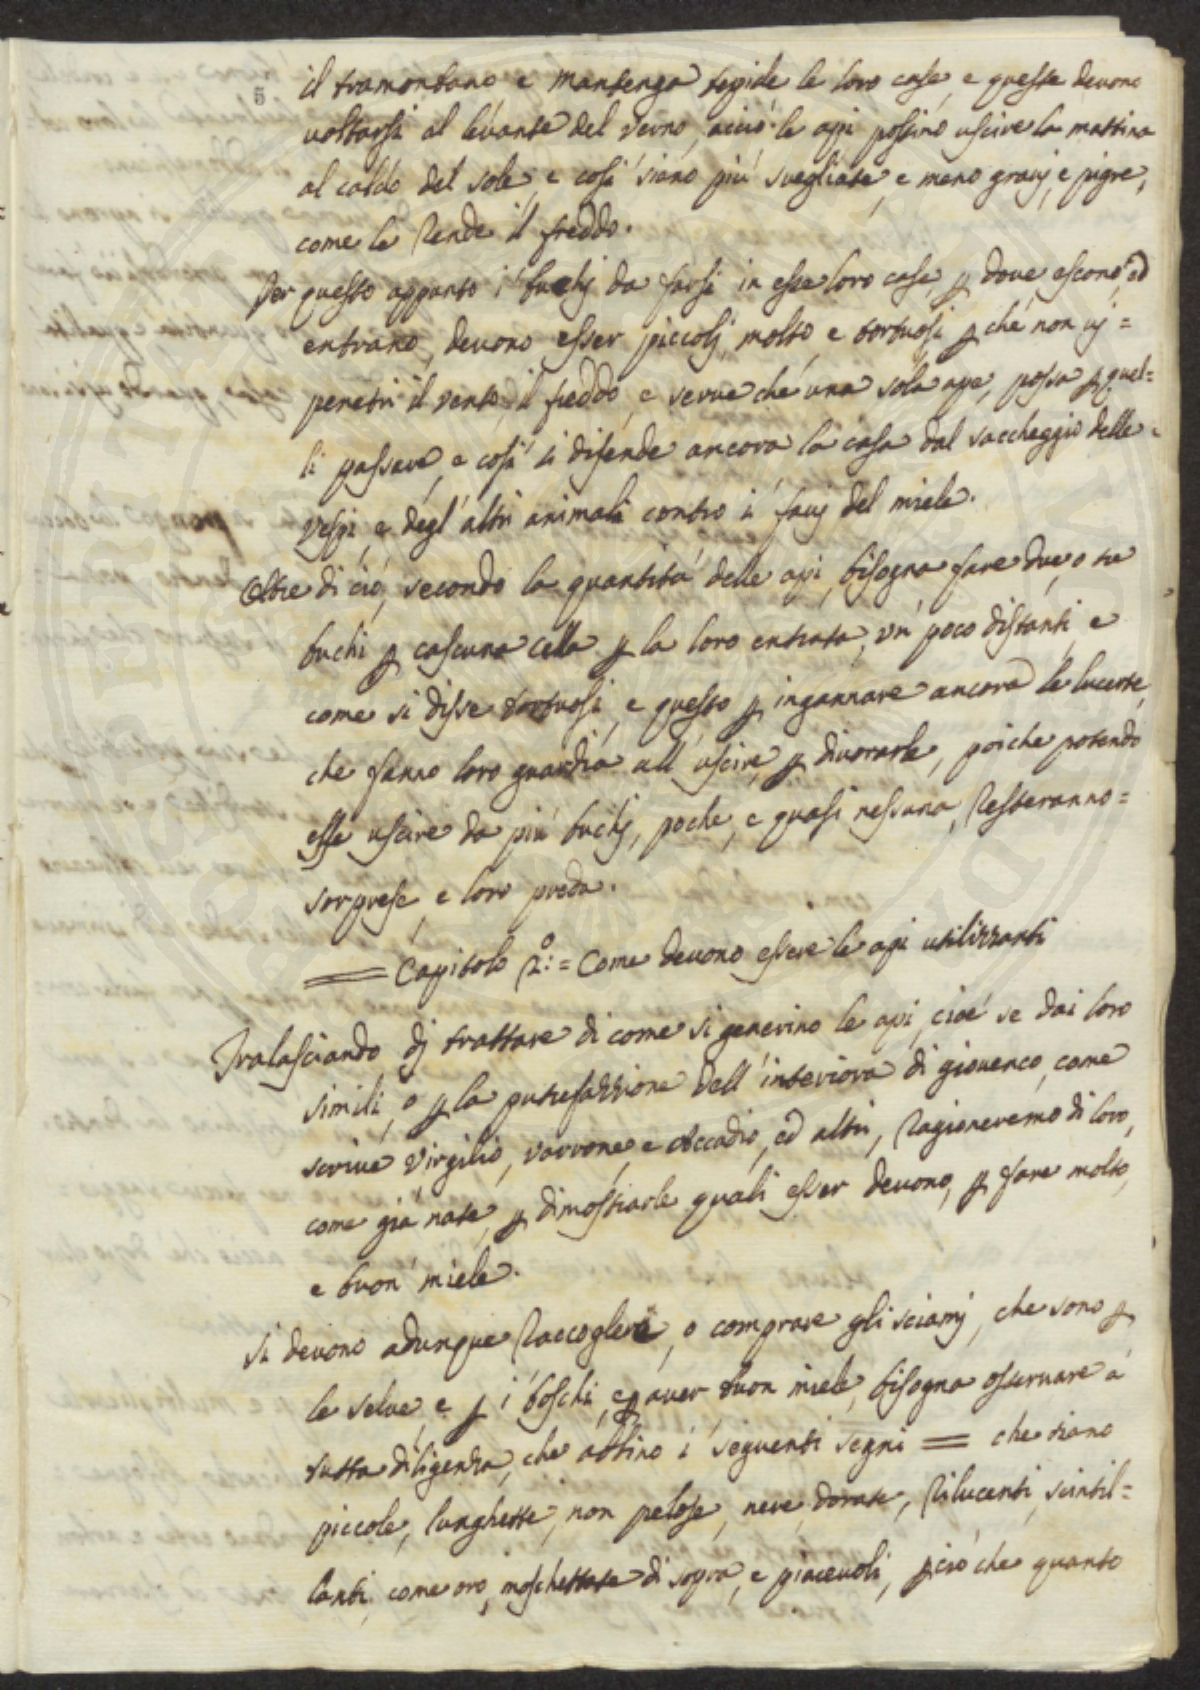 5
il tramontano e mantenga tepide le loro case, e queste devono
voltarsi al levante del verno, acciò le api possino uscire la mattina
al caldo del sole, e così siano più svegliate, e meno gravj, e pigre,
come le rende il freddo.
Per questo appunto i buchj da farsi in esse loro case, p dove escono, ed
entrano, devono esser piccolj molto, e tortuosi, p ché non vj =
penetri il vento, il freddo, e serve ché una sola ape, possa p quel=
li passare, e così si difende ancora la casa dal saccheggio delle
vespi, e degl'altri animali contro i favj del miele.
Oltre di ciò, secondo la quantità delle api, bisogna fare due, o tre
buchi p cascuna cella p la loro entrata, un poco distanti, e
come si disse tortuosi, e questo p ingannare ancora le lucerte,
che fanno loro guardia all'uscire, p divorarle, poiche potendo
esse uscire da più buchj, poche, e quasi nessuna, resteranno =
sorprese, e loro preda.
Capitolo 2.º = Come devono essere le api utilizzanti
Tralasciando dj trattare di come si generino le api, cioé se dai loro
simili, o p la putrefazzione dell'interiora di giovenco, come
scrive Virgilio, Varrone, e Accadio, ed altri, ragioneremo di loro,
come già nate, p dimostrarle quali esser devono, p fare molto,
e buon miele.
Si devono adunque raccogliere, o comprare gli sciamj, che sono p
le selve, e p i boschi, e p aver buon miele, bisogna osservare à
tutta diligenza, che abbino i seguenti segni = che siano
piccole, lunghette, non pelose, neve, dorate, rilucenti, scintil=
lanti, come oro, moschettate di sopra, e piacevoli, p ciò che quanto